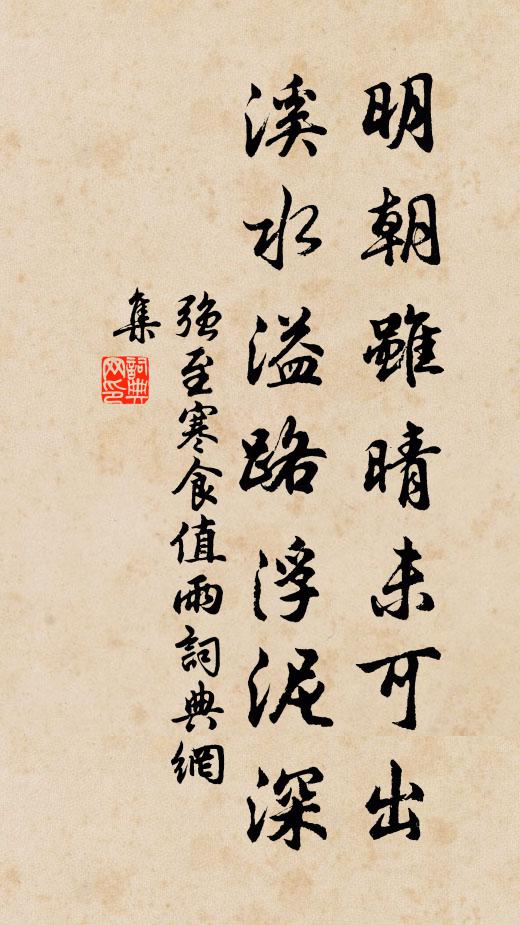 明朝雖晴未可出
溪水溢路浮泥深
強至寒食值雨詞典網
集
詞典
网印